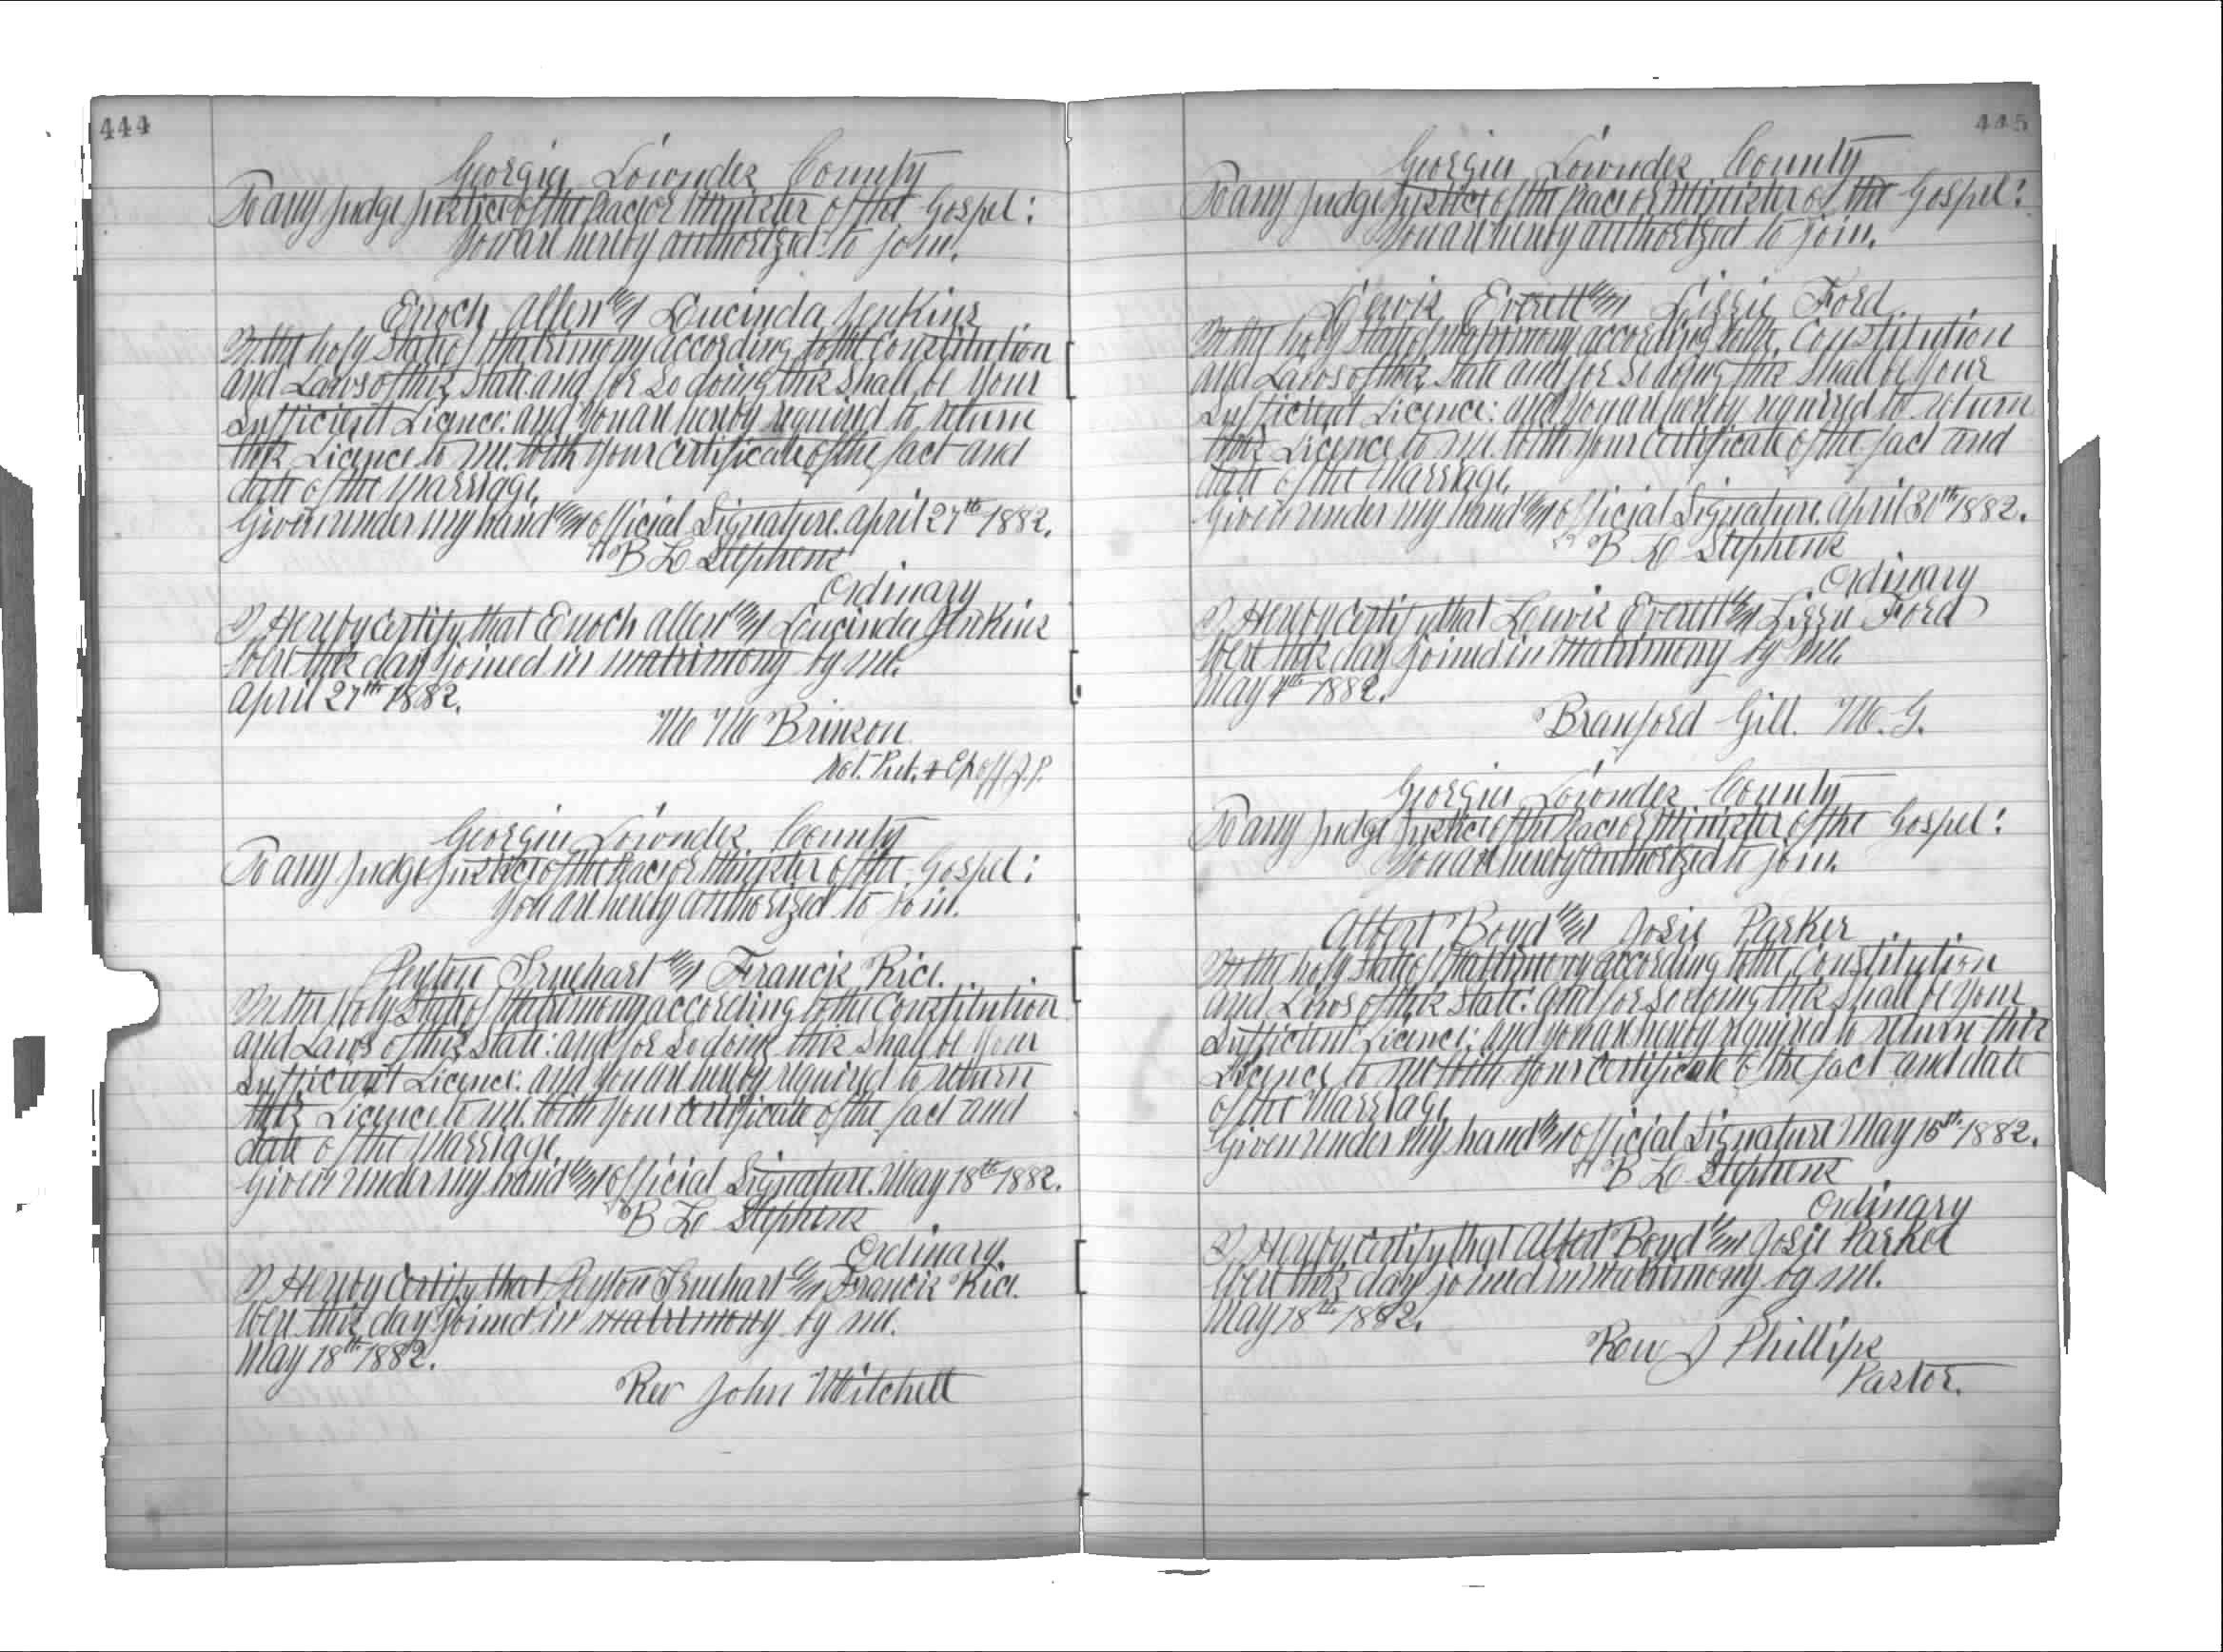 444
Georgia Lowndes County
To any Judge Justice of the Peace or Minister of the Gospel:
You are hereby authorized to join.
Enoch Allen and Lucinda Jenkins
In the holy State of Matrimony according to the Constitution
and Laws of this State and for so doing this shall be your
Sufficient Licence: and you are hereby required to return
this Licence to me. With your Certificate of the fact and
date of the Marriage.
Given under my hand and official Signature. April 27th 1882.
B L Stephens
Ordinary
I Hereby Certify that Enoch Allen and Leucinda Jenkins
Were this day joined in matrimony by me.
April 27th 1882.
M M Brinson
Not. Pub. & Ex off J. P.
Georgia Lowndes County
To any Judge Justice of the Peace or Minister of the Gospel:
You are hereby authorized to Join.
Peyton Truehart and Francis Rice.
In the holy State of Matrimony according to the Constitution
and Laws of this State: and for so doing this shall be your
Sufficient Licence: and you are hereby required to return
this Licence to me. With your Certificate of the fact and
date of the Marriage.
Given under my hand and official Signature. May 18th 1882.
B L Stephens
Ordinary
I Hereby Certify that Peyton Truehart and Francis Rice.
Were this day joined in matrimony by me.
May 18th 1882.
Rev John Mitchell
445
Georgia Lowndes County
To any Judge Justice of the Peace or Minister of the Gospel:
You are hereby authorized to join.
Lewis Everett and Lizzie Ford
In the holy State of matrimony according to the Constitution
and Laws of this State and for so doing this shall be your
Sufficient Licence: and you are hereby required to return
this Licence to me. With your Certificate of the fact and
date of the Marriage.
Given under my hand and official Signature. April 30th 1882.
B L Stephens
Ordinary
I Hereby Certify that Lewis Everett and Lizzie Ford
Were this day joined in matrimony by me.
May 4th 1882.
Branford Gill. M. G.
Georgia Lowndes County
To any Judge Justice of the Peace or Minister of the Gospel:
You are hereby authorized to join.
Albert Boyd and Josie Parker
In the holy State of Matrimony according to the Constitution
and Laws of this State: and for so doing this shall be your
Sufficient Licence: and you are hereby required to return this
Licence to me with your Certificate of the fact and date
of the Marriage
Given under my hand and official Signature May 15th 1882.
B L Stephens
Ordinary
I Hereby Certify that Albert Boyd and Josie Parker
Were this day joined in Matrimony by me.
May 18th 1882.
Rev J Phillips
Pastor.